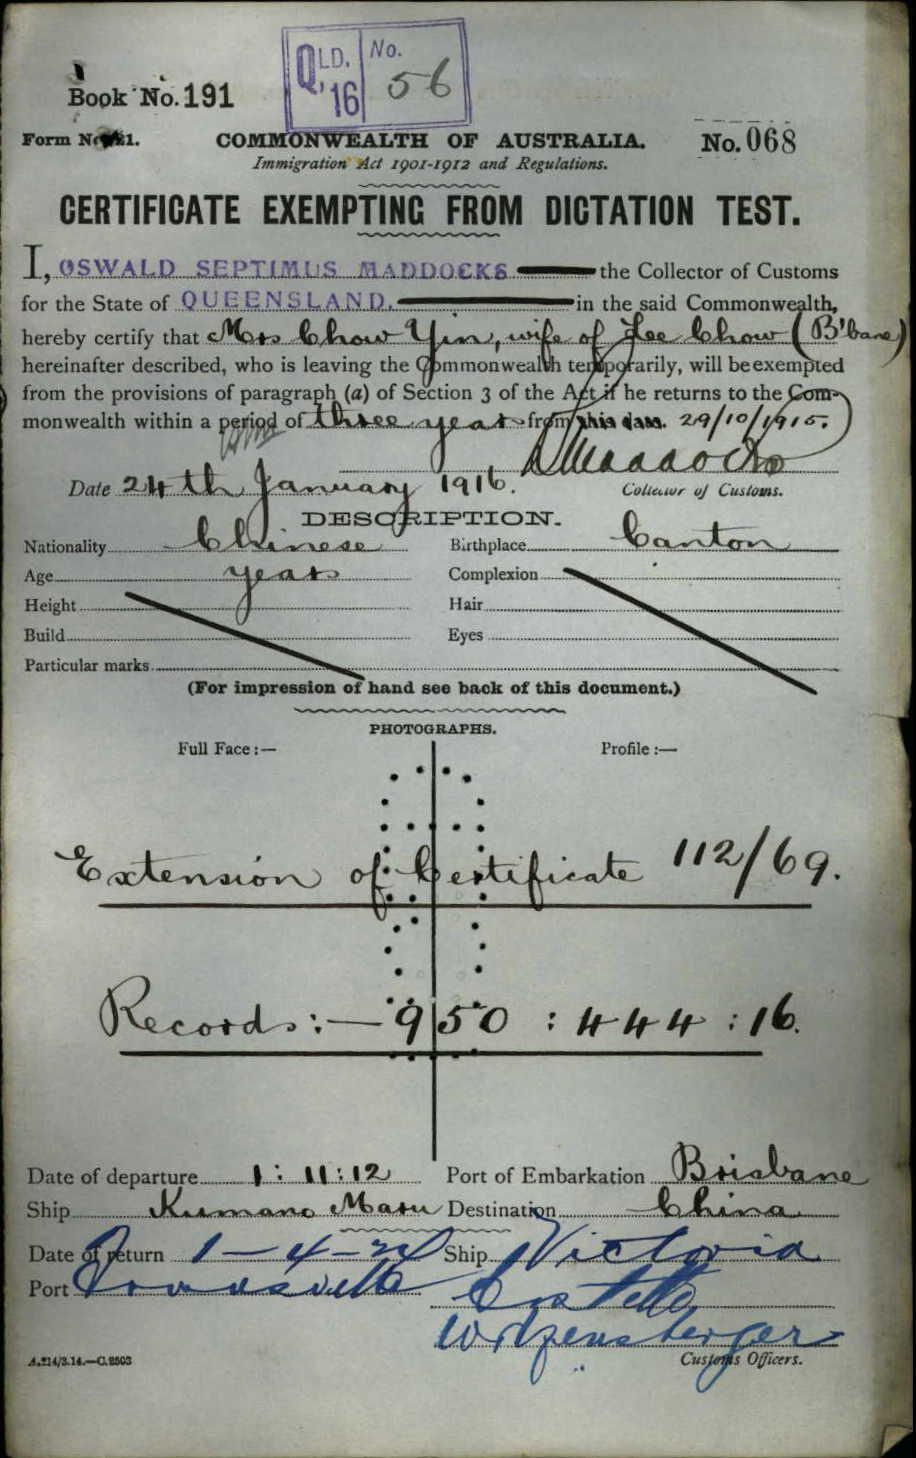 QLD. No.
'16 56
Book No. 191
Form No. 21. COMMONWEALTH OF AUSTRALIA. No. 068
Immigration Act 1901-1912 and Regulations.
CERTIFICATE EXEMPTING FROM DICTATION TEST.
I, OSWALD SEPTIMUS MADDOCKS the Collector of Customs
for the State of QUEENSLAND. in the said Commonwealth,
hereby certify that Mrs Chow Yin, wife of Lee Chow (B'bane)
hereinafter described, who is leaving the Commonwealth temporarily, will be exempted
from the provisions of paragraph (a) of Section 3 of the Act if he returns to the Com-
monwealth within a period of three years from this date. 29/10/1915.
Date 24th January 1916. Collector of Customs.
DESCRIPTION.
Nationality Chinese Birthplace Canton
Age years Complexion
Height Hair
Build Eyes
Particular marks
(For impression of hand see back of this document.)
PHOTOGRAPHS.
Full Face :— Profile :—
Extension of Certificate 112/69.
Records:— 950 : 444 : 16.
Date of departure 1 : 11 : 12 Port of Embarkation Brisbane
Ship Kumano Maru Destination China
Date of return 1-4-24 Ship Victoria
Port Townsville
Customs Officers.
A.214/3.14.—C.2503